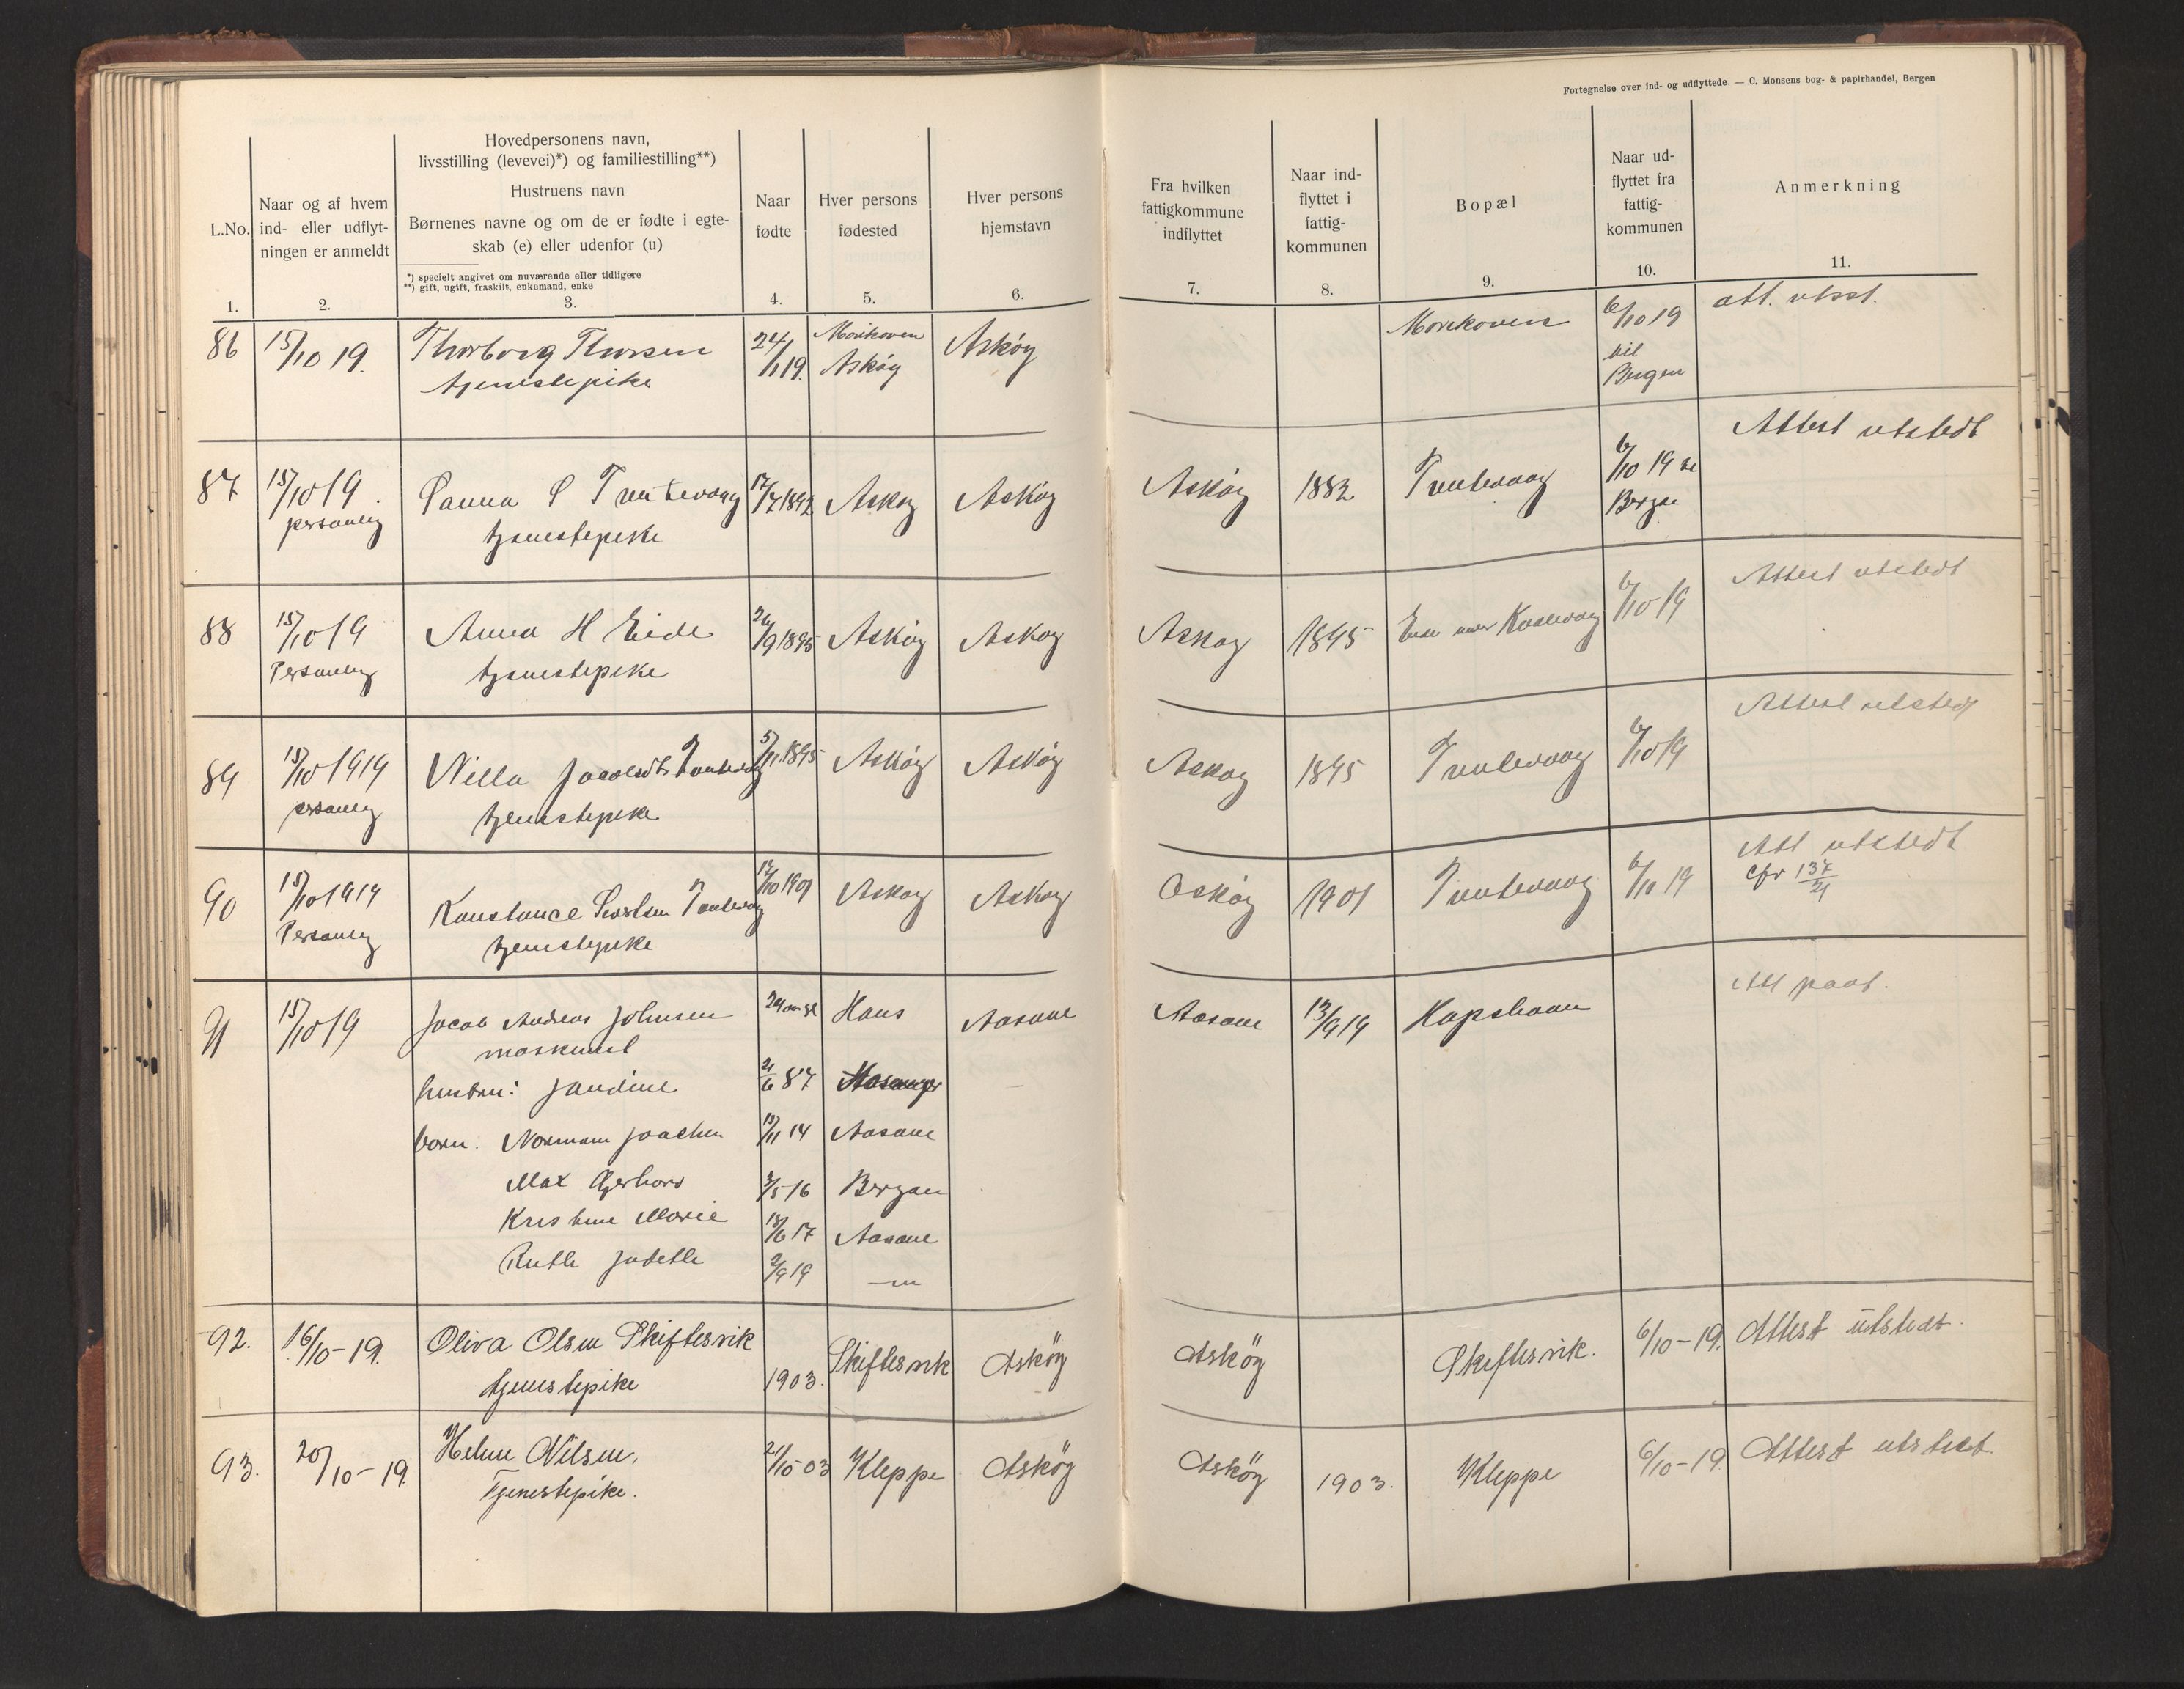 Fortegnelse over ind- og udflyttede. — C. Monsens bog- & papirhandel, Bergen
L.No.
1.
Naar og af hvem
ind- eller udflyt-
ningen er anmeldt
2.
Hovedpersonens navn,
livsstilling (levevei)*) og familiestilling**)
Hustruens navn
Børnenes navne og om de er fødte i egte-
skab (e) eller udenfor (u)
*) specielt angivet om nuværende eller tidligere
**) gift, ugift, fraskilt, enkemand, enke
3.
Naar
fødte
4.
Hver persons
fødested
5.
Hver persons
hjemstavn
6.
Fra hvilken
fattigkommune
indflyttet
7.
Naar ind-
flyttet i
fattig-
kommunen
8.
Bopæl
9.
Naar ud-
flyttet fra
fattig-
kommunen
10.
Anmerkning
11.
86 15/10 19. Thorborg Thorsen 24/1 19. Askøy Askøy 6/10 19 att. utst.
tjenestepike til
Bergen
87 15/10 19. 17/7 1892 Askøy Askøy Askøy 1882 6/10 19 Attest utstedt
personlig tjenestepike Bergen
88 15/10 19 Anna H Eide 26/9 1895 Askøy Askøy Askøy 1895 6/10 19 Attest utstedt
Personlig tjenestepike
89 15/10 1919 Nilla 5/11 1895 Askøy Askøy Askøy 1895 6/10 19 Attest utstedt
personlig tjenestepike
90 15/10 1919 Konstance 17/10 1901 Askøy Askøy Askøy 1901 6/10 19 Att utstedt
Personlig tjenestepike cfr 137/21
91 15/10 19 Jacob Andreas Johnsen Haus Aasane Aasane 13/9 19 Att
maskinist
hustru: Jandine 21/6 87
born. Normann Joachim 15/11 14 Aasane
Max Gerhard 3/5 16 Bergen
Kristine Marie 18/6 17 Aasane
Ruth 2/9 19 —"—
92. 16/10-19. Oliva Olsen Skiftesvik 1903. Skiftesvik Askøy Askøy Skiftesvik. 6/10-19. Attest utstedt.
tjenestepike
93. 20/10-19. Helene Nilsen, 21/10-03 Kleppe Askøy Askøy 1903. Kleppe 6/10-19. Attest utstedt.
Tjenestepike.